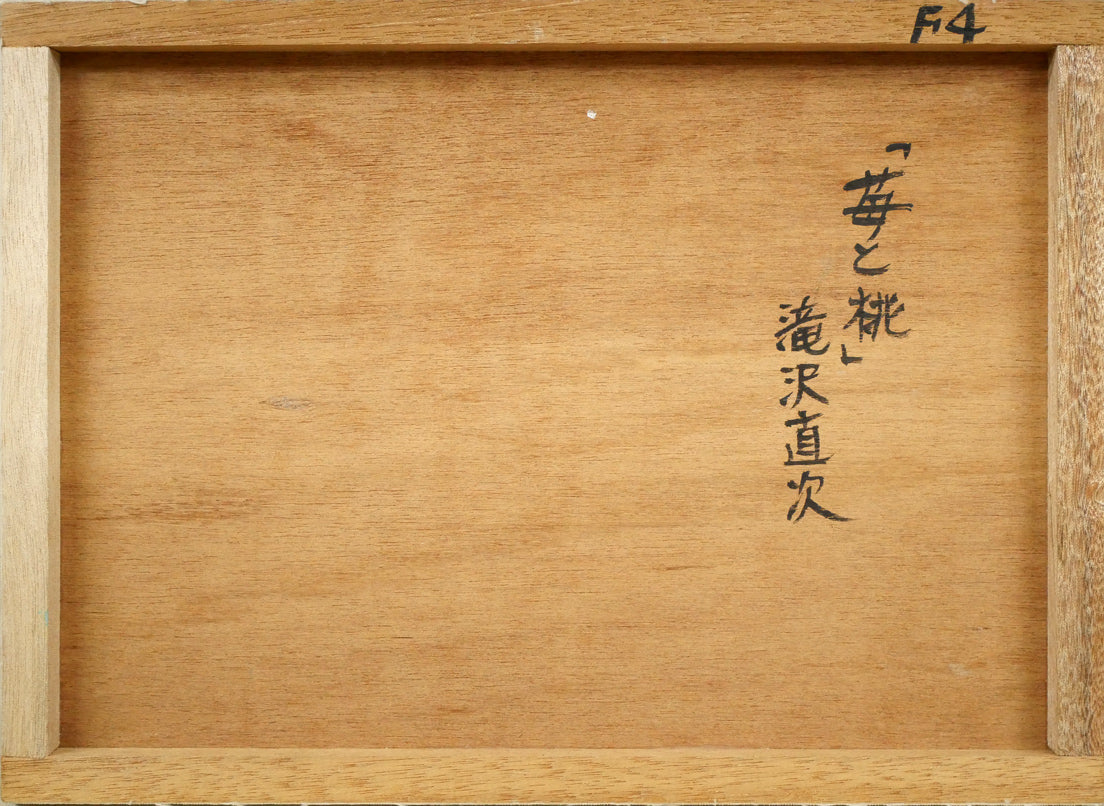 F4
「苺と桃」
滝沢直次